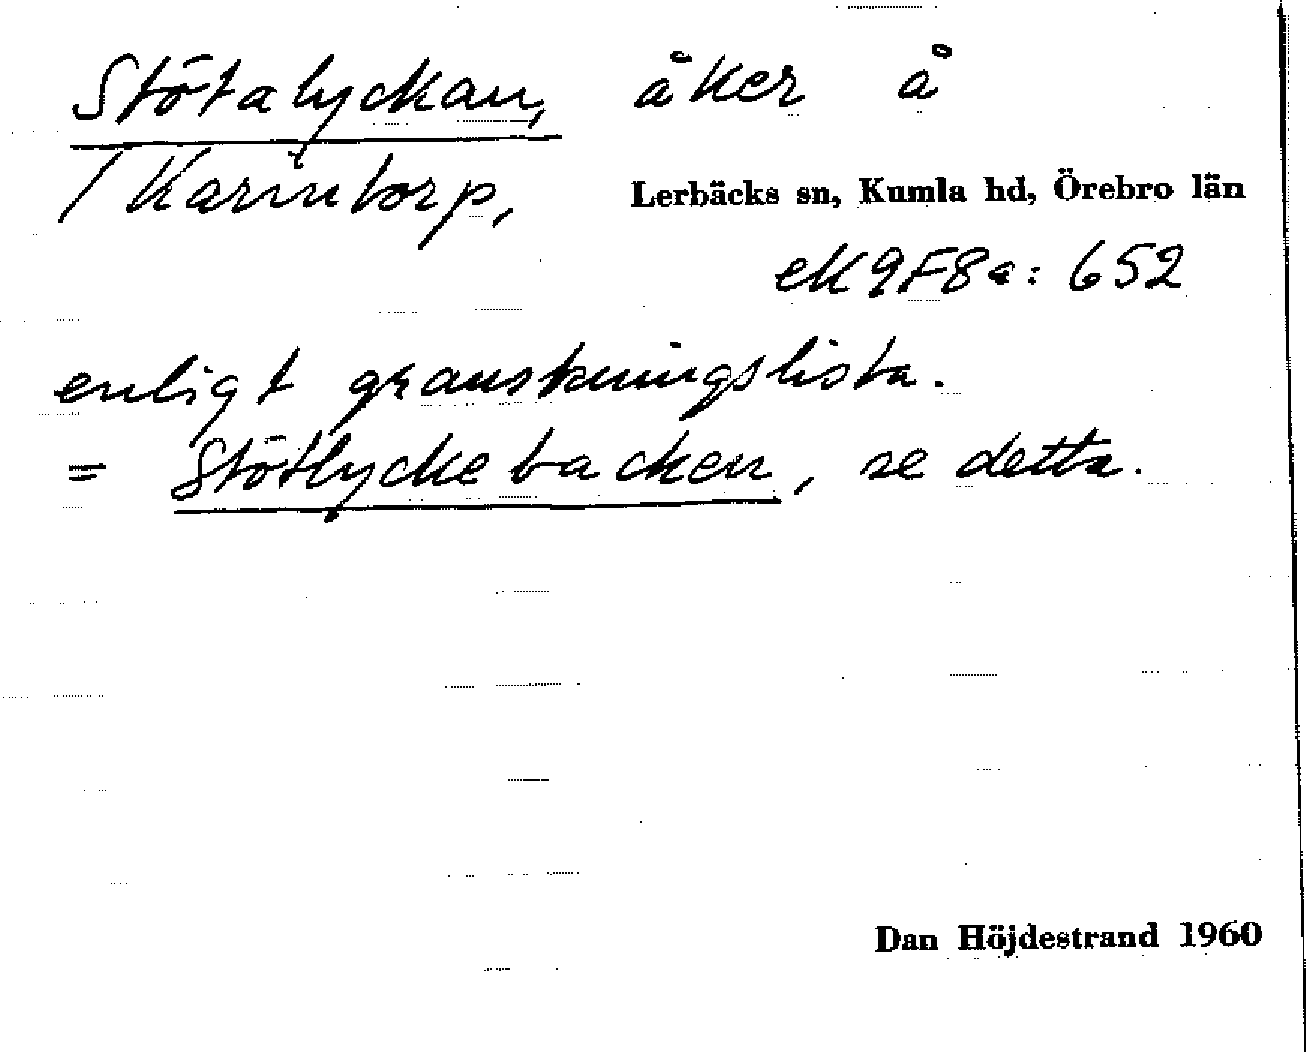 Stötalyckan, åker å
/ Karintorp, Lerbäcks sn, Kumla hd, Örebro län
ek 9F8a: 652
enligt granskningslista.
= Stötlyckebacken, se detta.
Dan Höjdestrand 1960